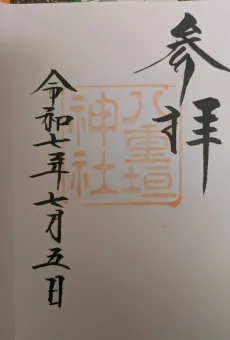 参拝
八重垣
神社
令和七年七月五日